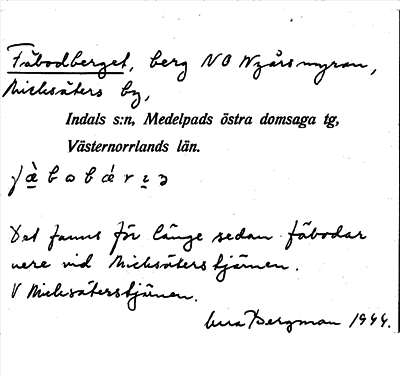 Fäbodberget, berg NO Nyårsmyran,
Nicksäters by,
Indals s:n, Medelpads östra domsaga tg,
Västernorrlands län.
Det fanns för länge sedan fäbodar
nere vid Nicksäterstjärnen.
V Nicksäterstjärnen.
Bergman 1944.